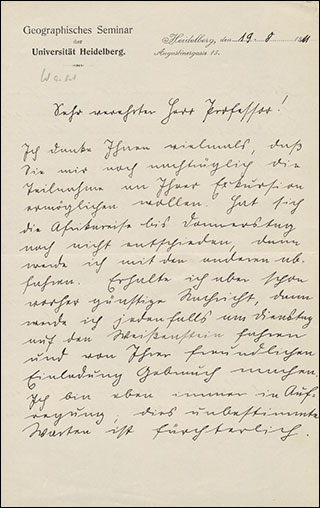 Geographisches Seminar
der
Universität Heidelberg.
Heidelberg, den 19. 8 1911
Augustinergasse 15.
Sehr verehrter Herr Professor!
Ich danke Ihnen vielmals, daß
Sie mir noch nachträglich die
Teilnahme an Ihrer Exkursion
ermöglichen wollen. Hat sich
die Afrikareise bis Donnerstag
noch nicht entschieden, dann
werde ich mit den anderen ab-
fahren. Erhalte ich aber schon
vorher günstige Nachricht, dann
werde ich jedenfalls am Dienstag
auf den Weißenstein fahren
und von Ihrer freundlichen
Einladung Gebrauch machen.
Ich bin eben immer in Auf-
regung; dies unbestimmte
Warten ist fürchterlich.